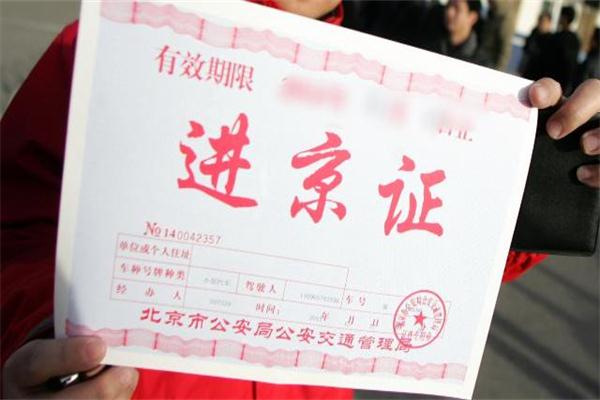 有效期限
进京证
№140042357
单位或个人住址
车种号牌种类 小型汽车 驾驶人 车号
经办人 时间: 年 月 日
北京市公安局公安交通管理局